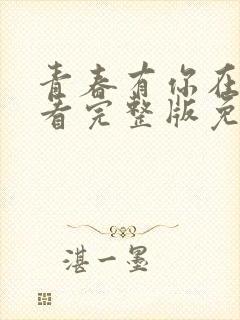 青春有你在
看完整版免
湛一墨